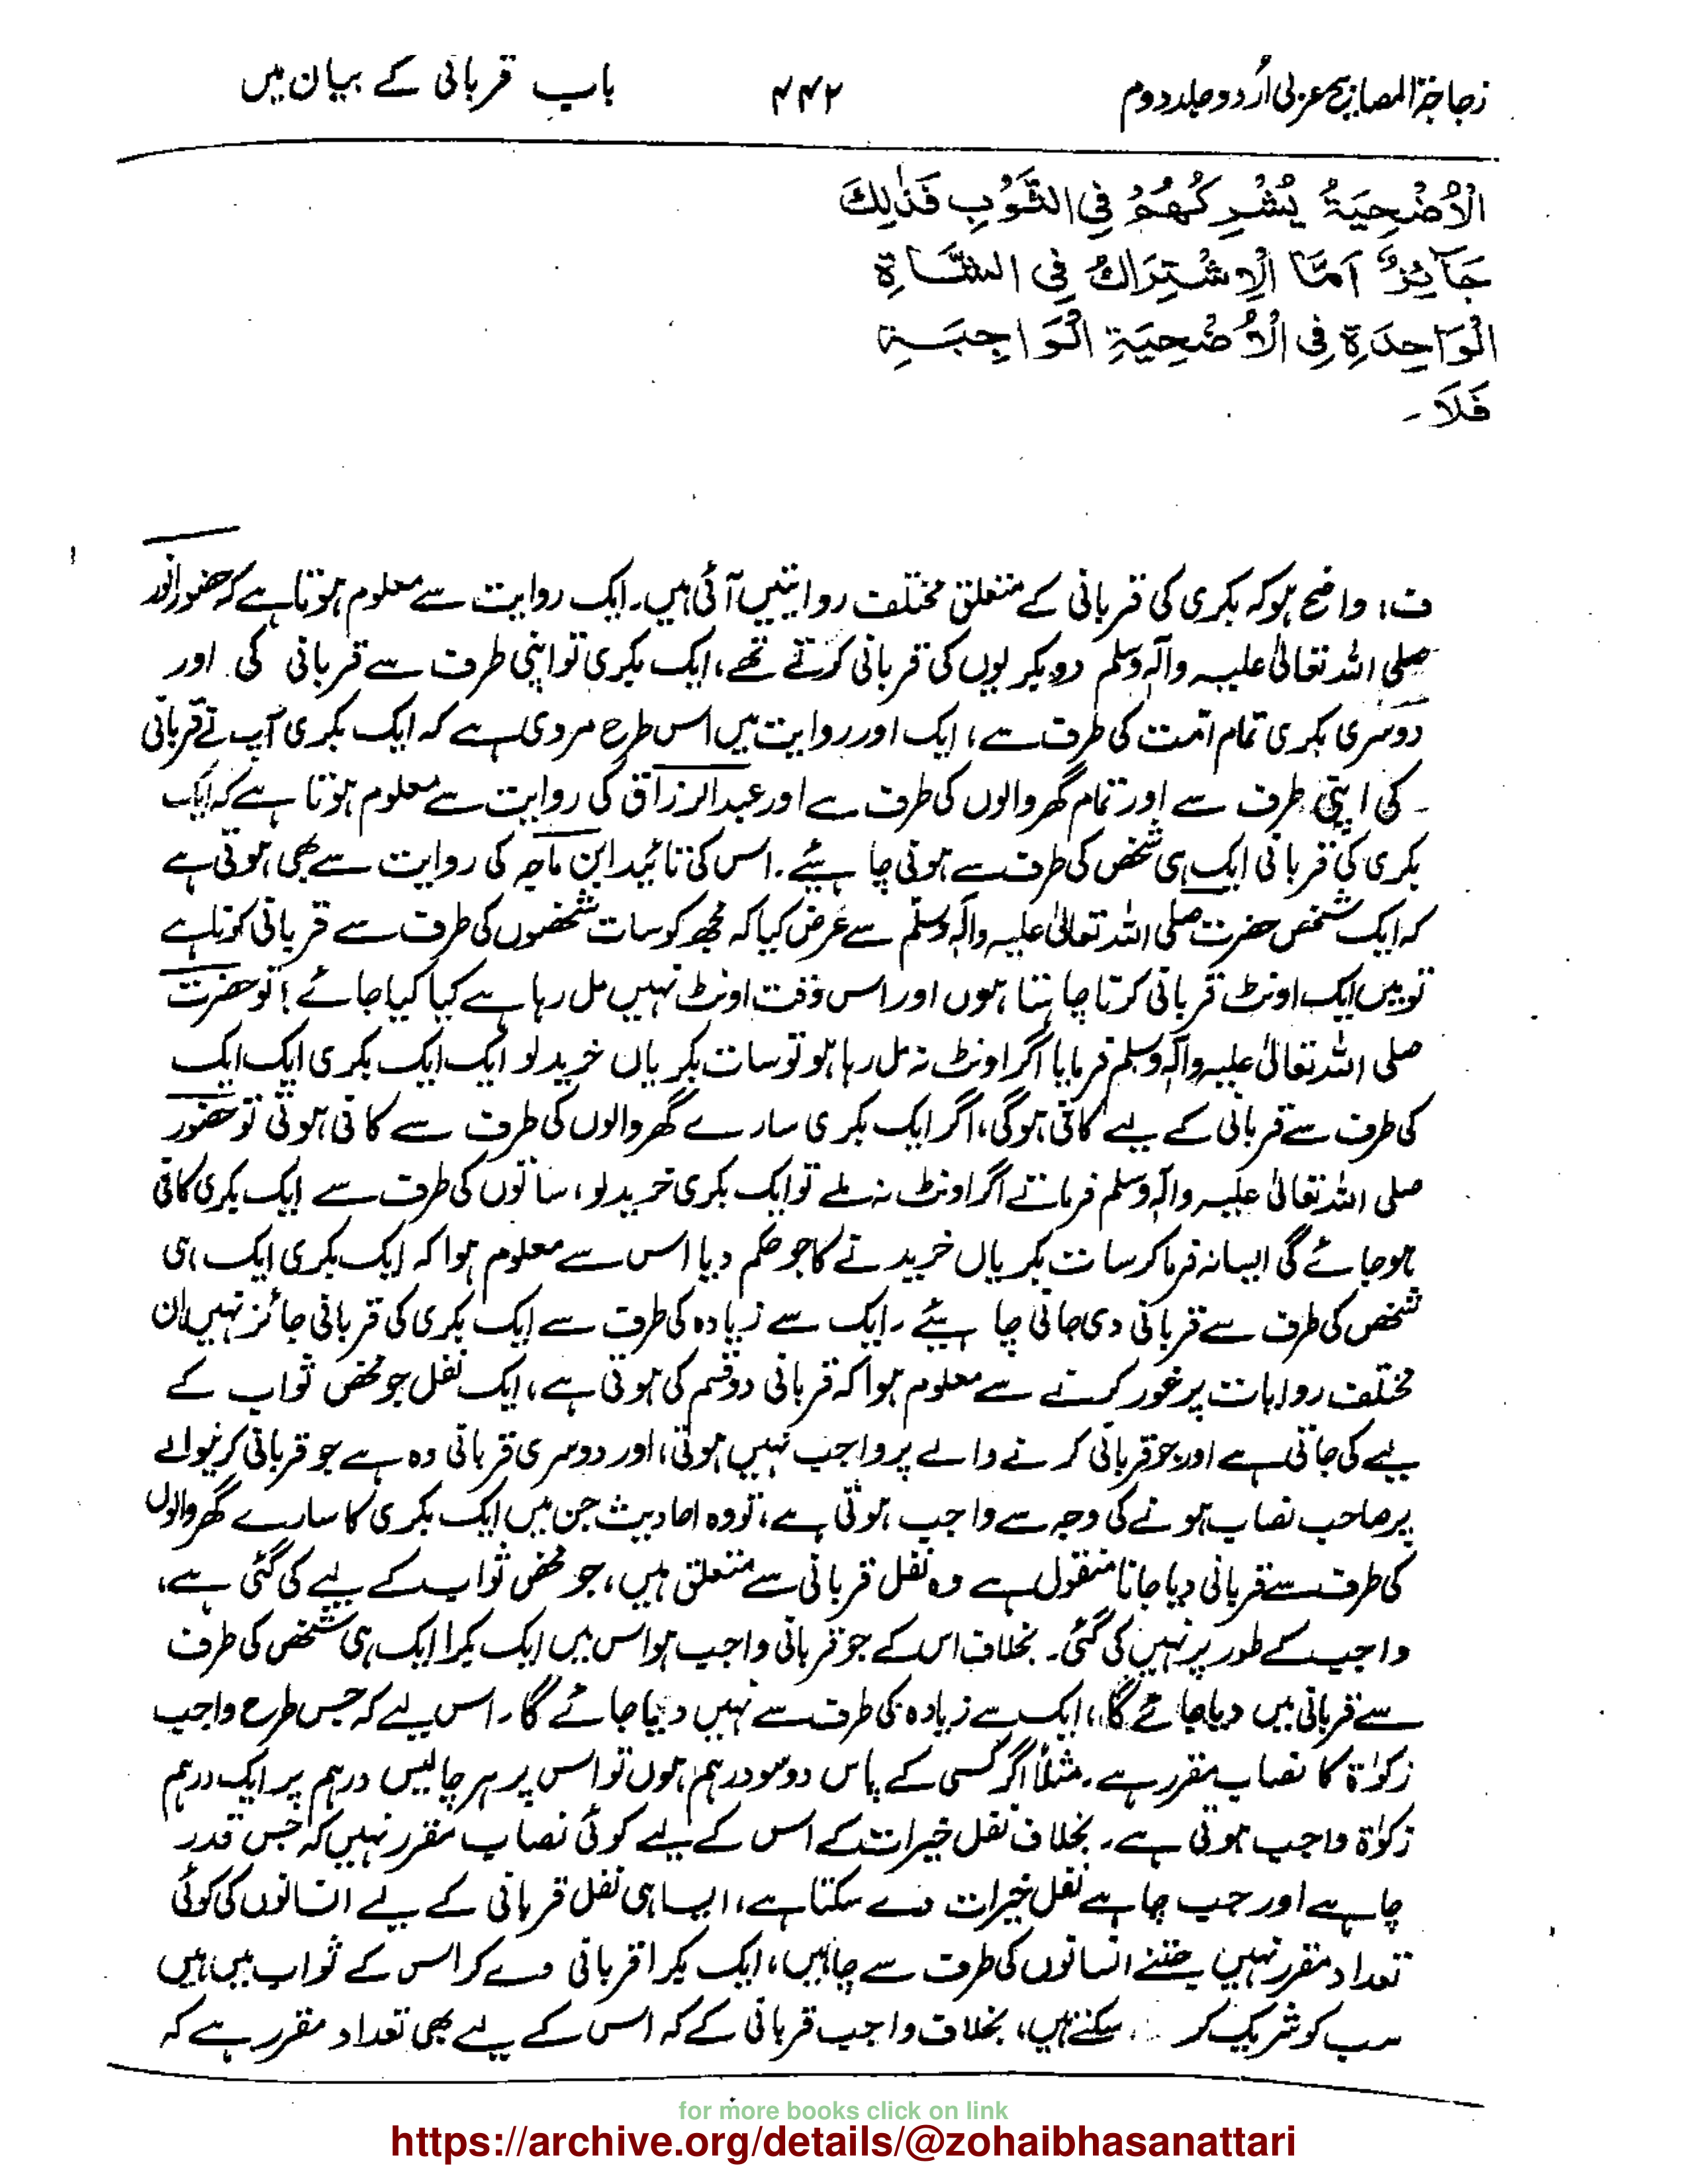 زجاجۃ المصابیح عربی اُردو جلد دوم ۴۴۲ باب قربانی کے بیان میں
الْاُضْحِيَةُ يُشْرِكُهُمْ فِي الثَّوَابِ فَذٰلِكَ
جَآئِزٌ اَمَّا الْاِشْتِرَاكُ فِي الشَّاةِ
الْوَاحِدَةِ فِي الْاُضْحِيَةِ الْوَاجِبَةِ
فَلَا۔
ف: واضح ہو کہ بکری کی قربانی کے متعلق مختلف روایتیں آئی ہیں۔ ایک روایت سے معلوم ہوتا ہے کہ حضور انور
صلی اللہ تعالیٰ علیہ وآلہٖ وسلم دو بکریوں کی قربانی کرتے تھے، ایک بکری تو اپنی طرف سے قربانی کی اور
دوسری بکری تمام امت کی طرف سے، ایک اور روایت میں اس طرح مروی ہے کہ ایک بکری آپ نے قربانی
کی اپنی طرف سے اور تمام گھر والوں کی طرف سے اور عبدالرزاق کی روایت سے معلوم ہوتا ہے کہ ایک
بکری کی قربانی ایک ہی شخص کی طرف سے ہونی چاہیئے۔ اس کی تائید ابن ماجہ کی روایت سے بھی ہوتی ہے
کہ ایک شخص حضرت صلی اللہ تعالیٰ علیہ وآلہٖ وسلم سے عرض کیا کہ مجھ کو سات شخصوں کی طرف سے قربانی کرنا ہے
تو میں ایک اونٹ قربانی کرنا چاہتا ہوں اور اس وقت اونٹ نہیں مل رہا ہے کیا کیا جائے؟ تو حضرت
صلی اللہ تعالیٰ علیہ وآلہٖ وسلم فرمایا اگر اونٹ نہ مل رہا ہو تو سات بکریاں خرید لو ایک ایک بکری ایک ایک
کی طرف سے قربانی کے لیے کافی ہوگی، اگر ایک بکری سارے گھر والوں کی طرف سے کافی ہوتی تو حضور
صلی اللہ تعالیٰ علیہ وآلہٖ وسلم فرماتے اگر اونٹ نہ ملے تو ایک بکری خرید لو، ساتوں کی طرف سے ایک بکری کافی
ہوجائے گی ایسا نہ فرما کر سات بکریاں خریدنے کا جو حکم دیا اس سے معلوم ہوا کہ ایک بکری ایک ہی
شخص کی طرف سے قربانی دی جانی چاہیئے۔ ایک سے زیادہ کی طرف سے ایک بکری کی قربانی جائز نہیں ان
مختلف روایات پر غور کرنے سے معلوم ہوا کہ قربانی دو قسم کی ہوتی ہے، ایک نفل جو محض ثواب کے
لیے کی جاتی ہے اور جو قربانی کرنے والے پر واجب نہیں ہوتی، اور دوسری قربانی وہ ہے جو قربانی کرنیوالے
پر صاحب نصاب ہونے کی وجہ سے واجب ہوتی ہے، تو وہ احادیث جن میں ایک بکری کا سارے گھر والوں
کی طرف سے قربانی دیا جانا منقول ہے وہ نفل قربانی سے متعلق ہیں، جو محض ثواب کے لیے کی گئی ہے،
واجب کے طور پر نہیں کی گئی۔ بخلاف اس کے جو قربانی واجب ہو اس میں ایک بکرا ایک ہی شخص کی طرف
سے قربانی میں دیا جائے گا، ایک سے زیادہ کی طرف سے نہیں دیا جائے گا۔ اس لیے کہ جس طرح واجب
زکوٰۃ کا نصاب مقرر ہے۔ مثلاً اگر کسی کے پاس دو سو درہم ہوں تو اس پر ہر چالیس درہم پر ایک درہم
زکوٰۃ واجب ہوتی ہے۔ بخلاف نفل خیرات کے اس کے لیے کوئی نصاب مقرر نہیں کہ جس قدر
چاہے اور جب چاہے نفل خیرات دے سکتا ہے، ایسا ہی نفل قربانی کے لیے انسانوں کی کوئی
تعداد مقرر نہیں جتنے انسانوں کی طرف سے چاہیں، ایک بکرا قربانی دے کر اس کے ثواب میں ہیں
سب کو شریک کر سکتے ہیں، بخلاف واجب قربانی کے کہ اس کے لیے بھی تعداد مقرر ہے کہ
for more books click on link
https://archive.org/details/@zohaibhasanattari